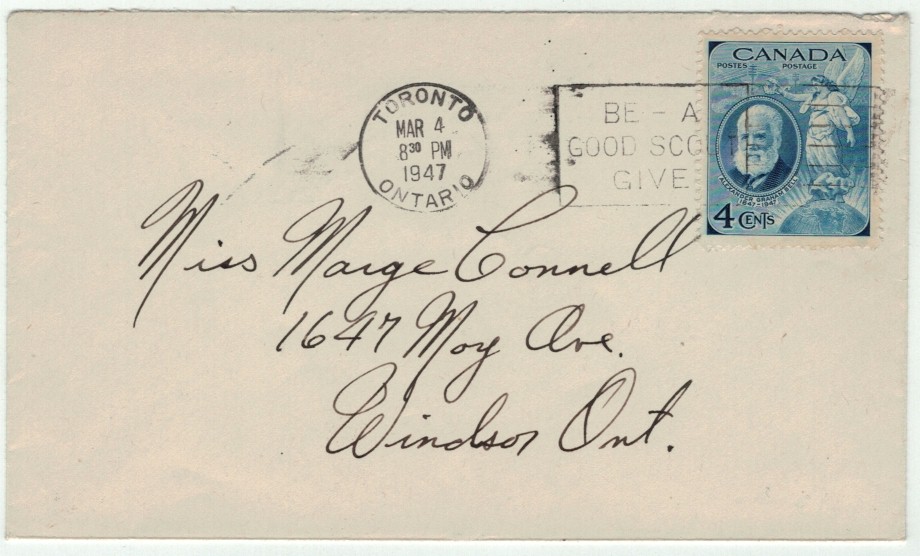 TORONTO
MAR 4
8³⁰ PM
1947
ONTARIO
BE - A
GOOD SCO
GIVE
CANADA
POSTES POSTAGE
ALEXANDER GRAHAM BELL
1847-1947
4 CENTS
Miss Marge Connell
1647 Moy Ave.
Windsor Ont.